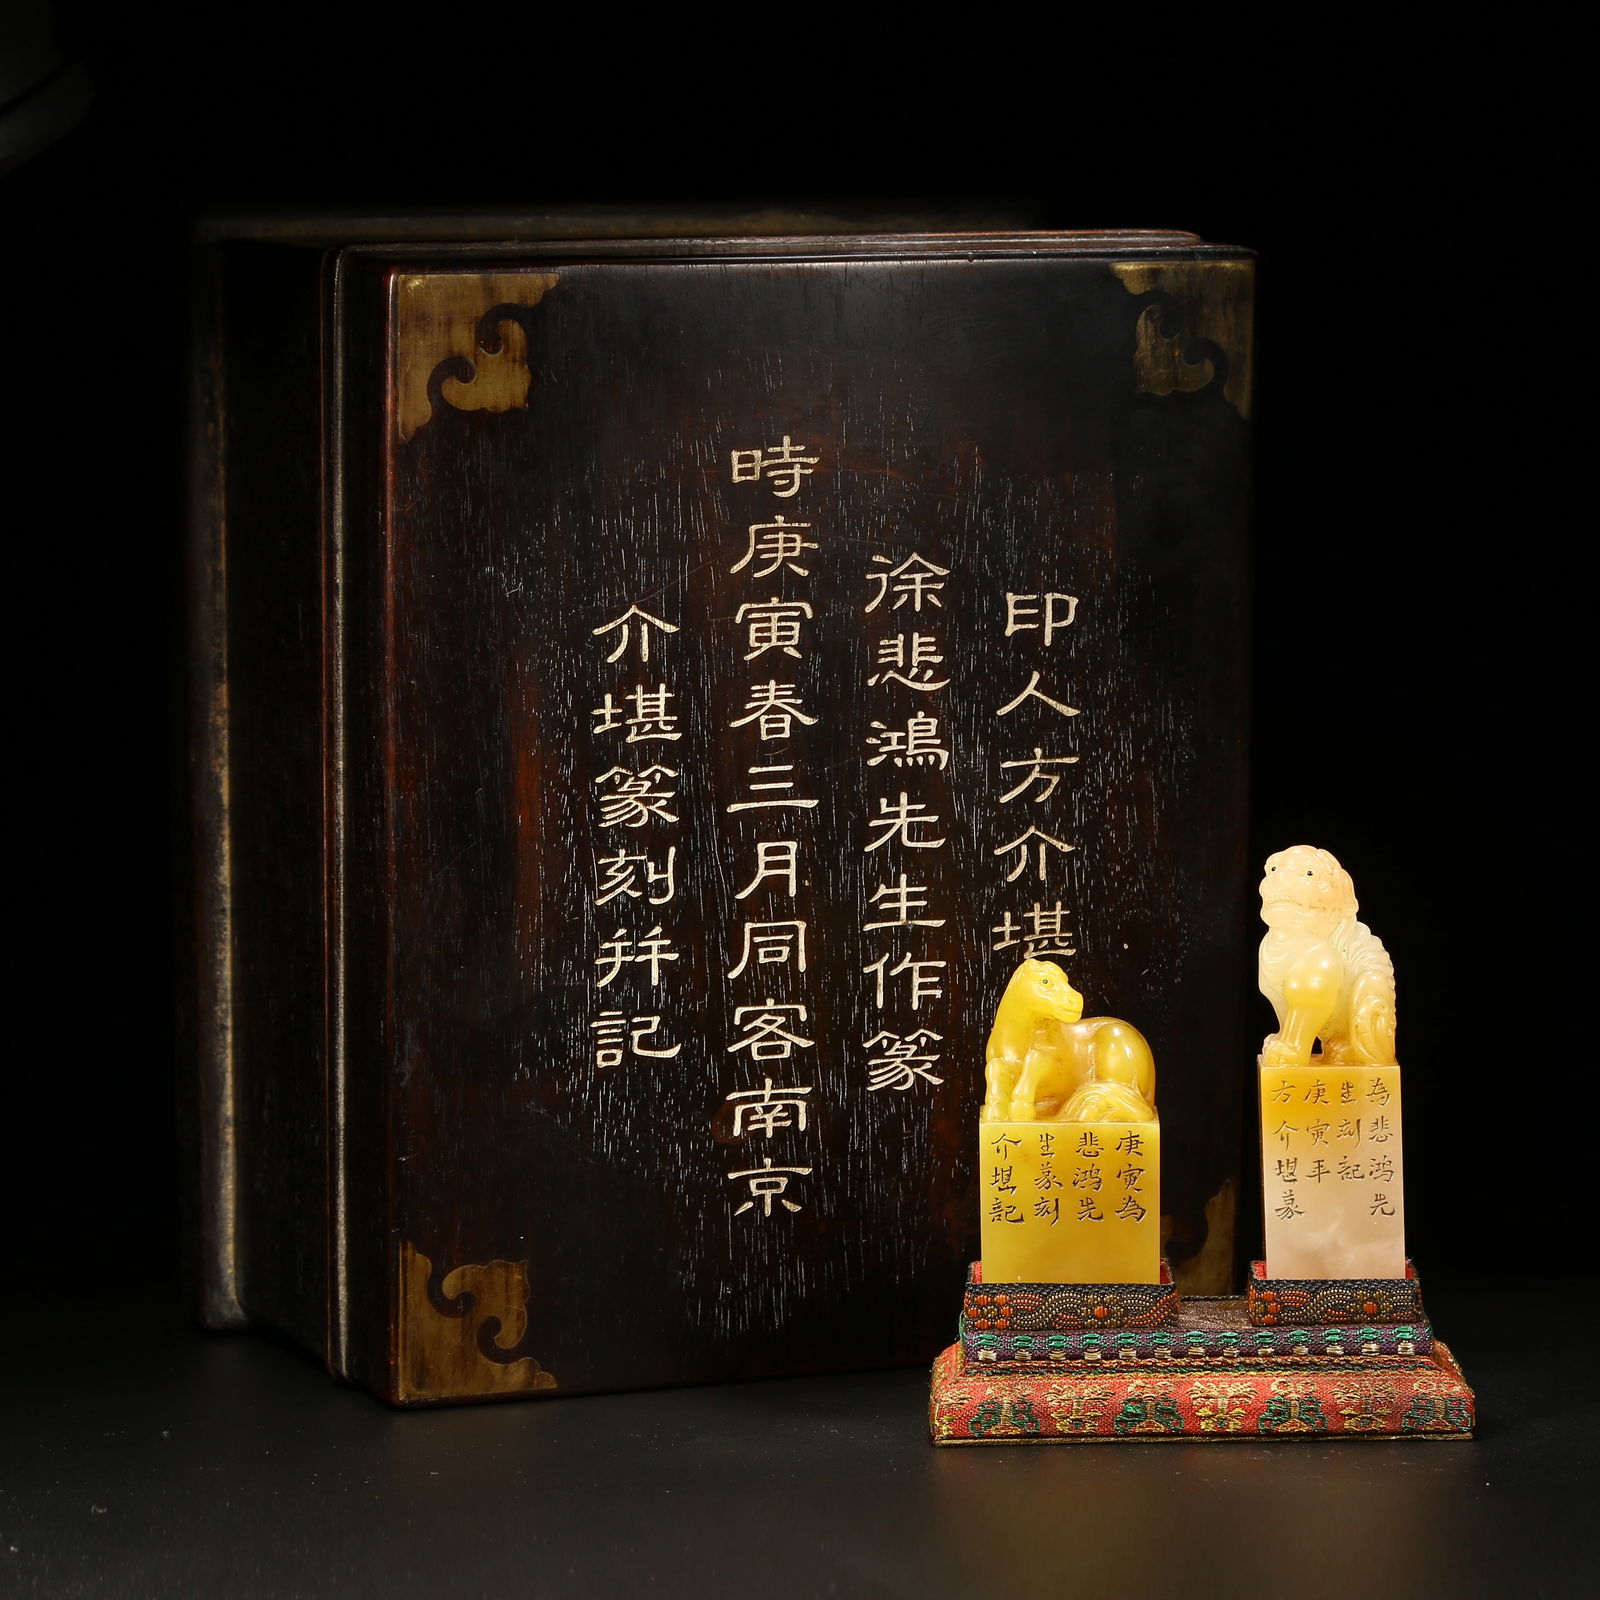 印人方介堪
徐悲鴻先生作篆
時庚寅春三月同客南京
介堪篆刻并記
庚寅為
悲鴻先
生篆刻
介堪記
為悲鴻先
生刻記
庚寅年
方介堪篆